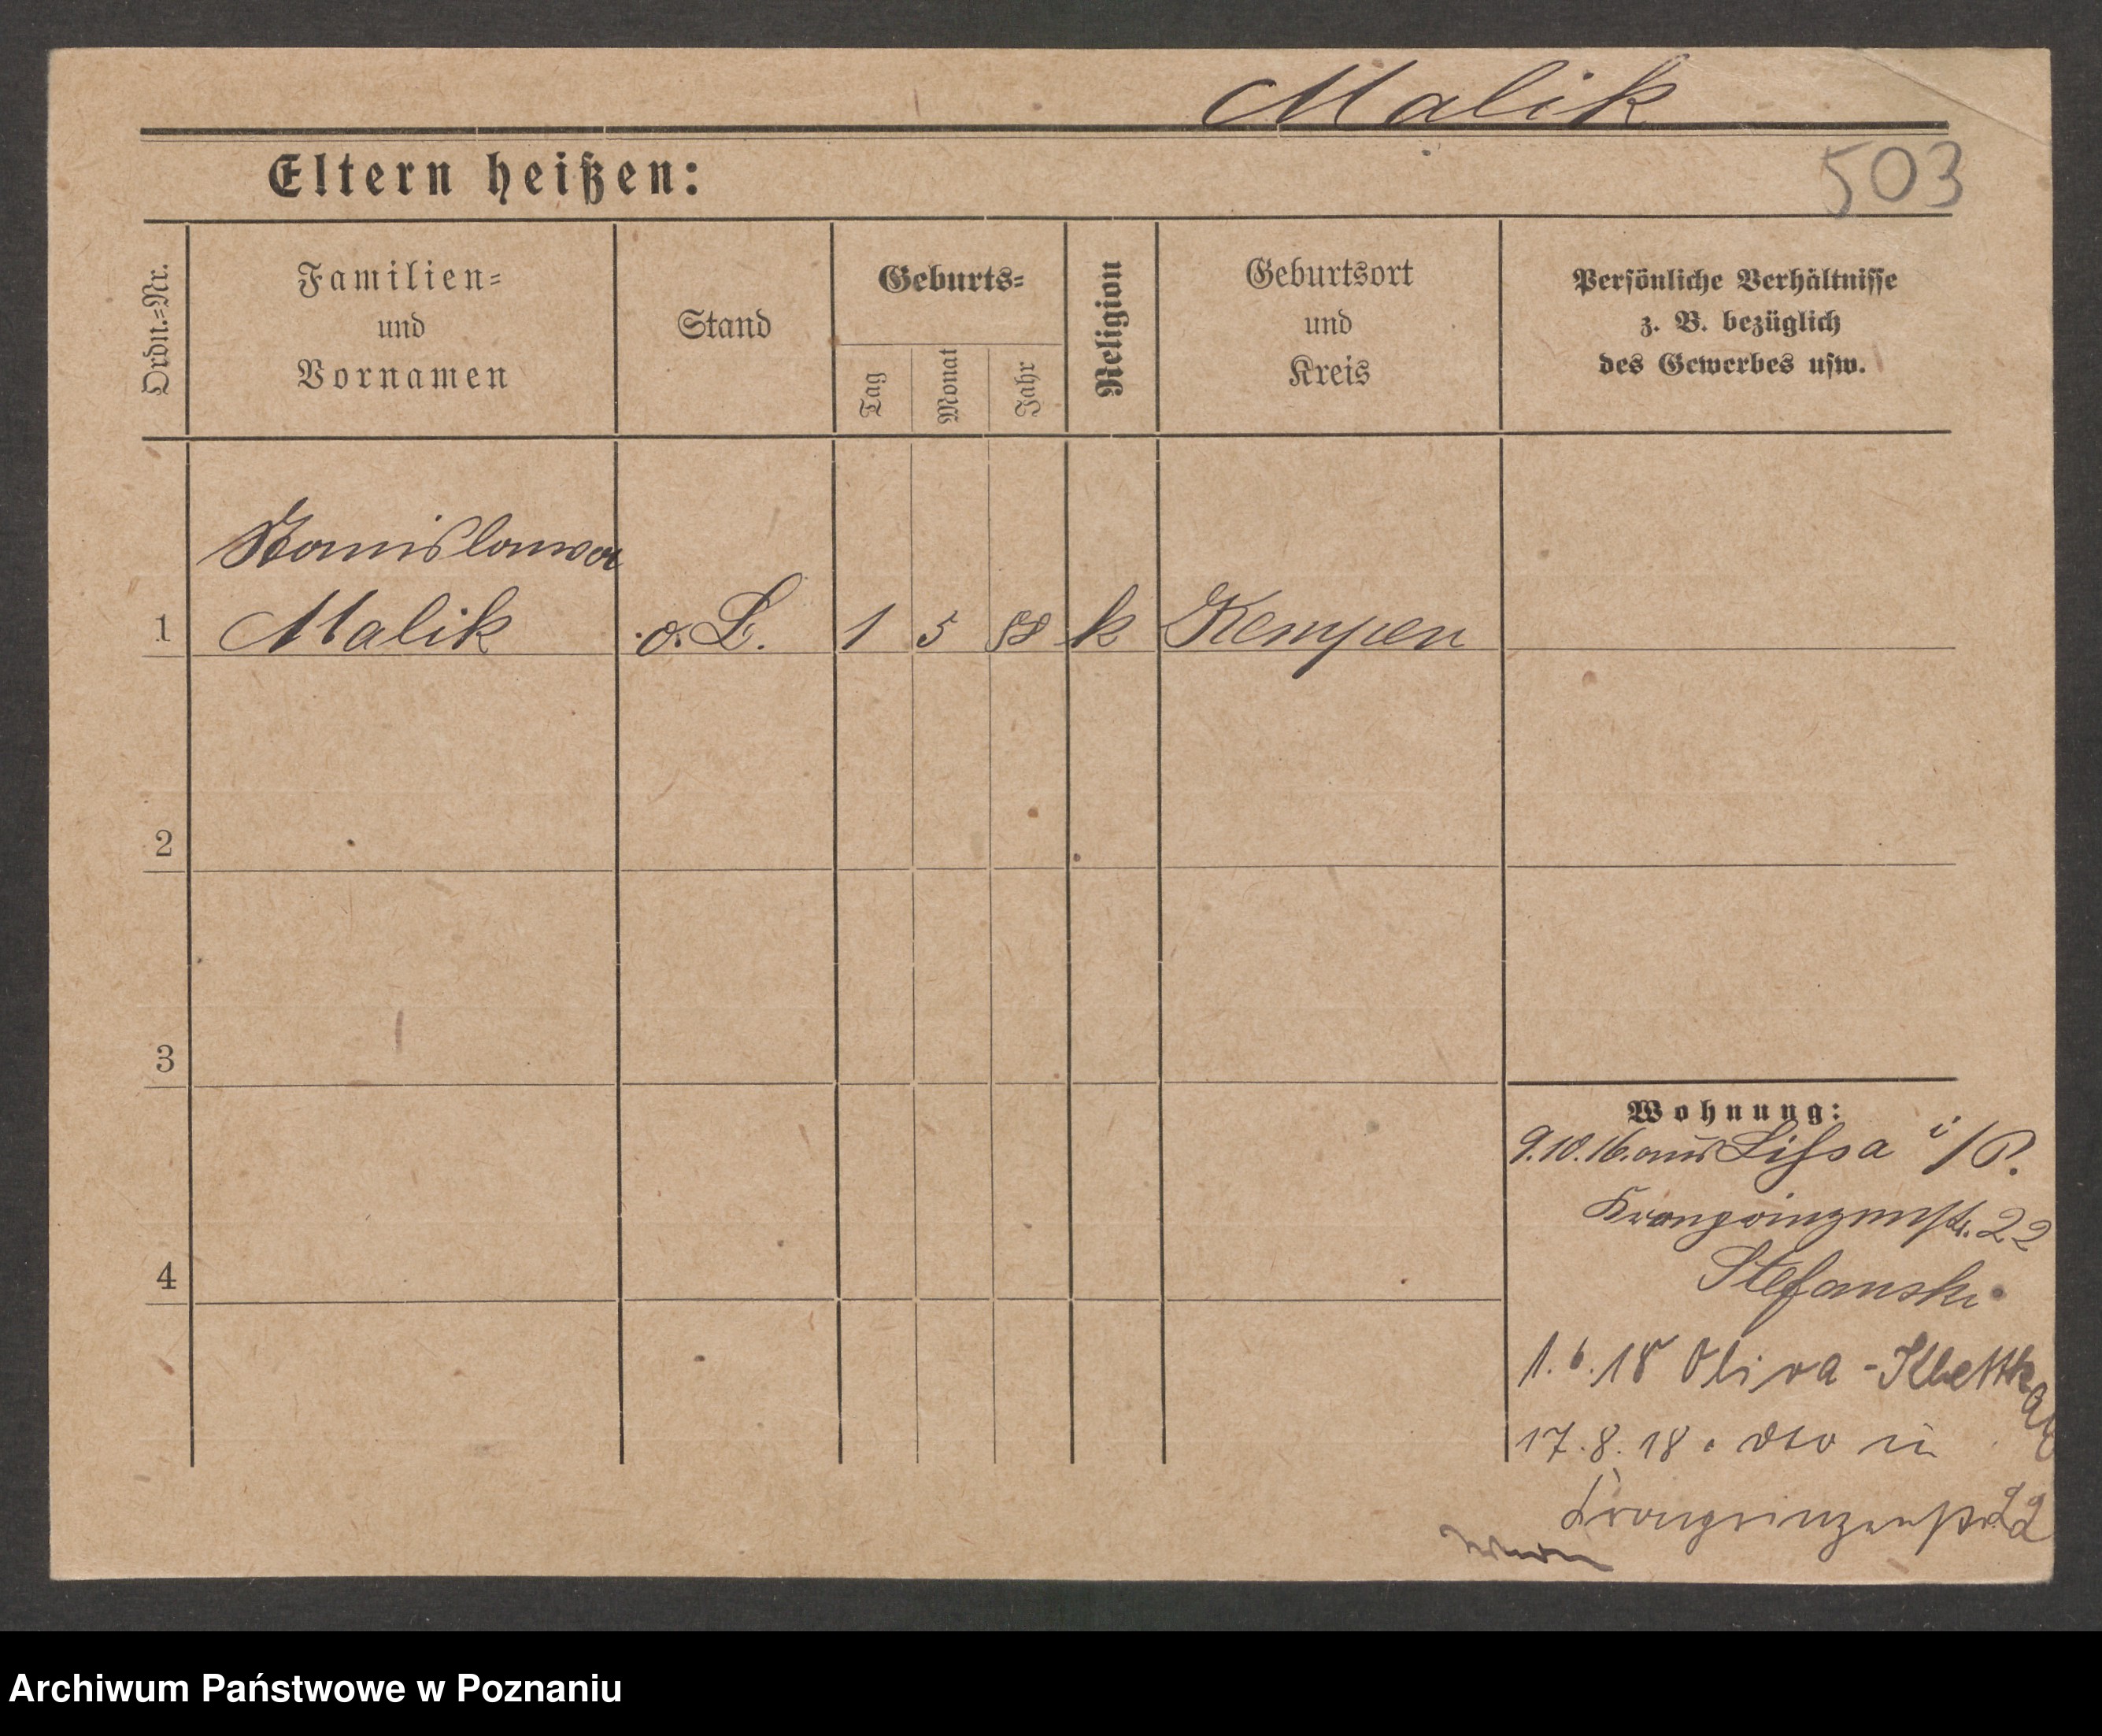 Malik
503
Eltern heißen:
Ordn.-Nr.
Familien-
und
Vornamen
Stand
Geburts-
Tag
Monat
Jahr
Religion
Geburtsort
und
Kreis
Persönliche Verhältnisse
z. B. bezüglich
des Gewerbes usw.
Stanislawa
1 Malik o. B. 1 5 88 k Kempen
2
3
4
Wohnung:
9.10.16. aus Lissa i/P.
Kronprinzenstr. 22
Stefanski
1.6.18 Oliva-
17.8.18. in
Kronprinzenstr. 22
Archiwum Państwowe w Poznaniu